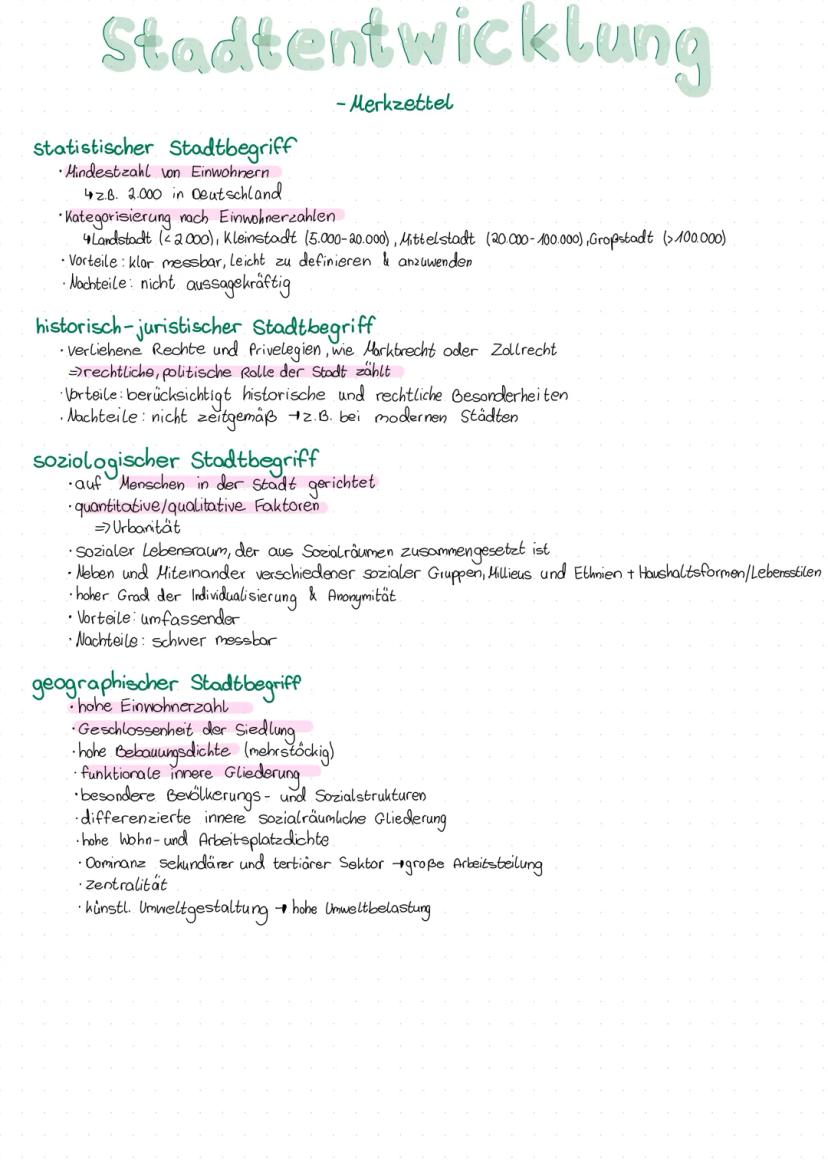 Stadtentwicklung
- Merkzettel
statistischer Stadtbegriff
· Mindestzahl von Einwohnern
↳ z.B. 2.000 in Deutschland
· Kategorisierung nach Einwohnerzahlen
↳ Landstadt (<2000), Kleinstadt (5.000-20.000), Mittelstadt (20.000-100.000), Großstadt (>100.000)
· Vorteile: klar messbar, leicht zu definieren & anzuwenden
· Nachteile: nicht aussagekräftig
historisch-juristischer Stadtbegriff
· verliehene Rechte und Privelegien, wie Marktrecht oder Zollrecht
⇒ rechtliche, politische Rolle der Stadt zählt
· Vorteile: berücksichtigt historische und rechtliche Besonderheiten
· Nachteile: nicht zeitgemäß → z.B. bei modernen Städten
soziologischer Stadtbegriff
· auf Menschen in der Stadt gerichtet
· quantitative/qualitative Faktoren
⇒ Urbanität
· sozialer Lebensraum, der aus Sozialräumen zusammengesetzt ist
· Neben und Miteinander verschiedener sozialer Gruppen, Millieus und Ethnien + Haushaltsformen/Lebensstilen
· hoher Grad der Individualisierung & Anonymität
· Vorteile: umfassender
· Nachteile: schwer messbar
geographischer Stadtbegriff
· hohe Einwohnerzahl
· Geschlossenheit der Siedlung
· hohe Bebauungsdichte (mehrstöckig)
· funktionale innere Gliederung
· besondere Bevölkerungs- und Sozialstrukturen
· differenzierte innere sozialräumliche Gliederung
· hohe Wohn- und Arbeitsplatzdichte
· Dominanz sekundärer und tertiärer Sektor → große Arbeitsteilung
· Zentralität
· künstl. Umweltgestaltung → hohe Umweltbelastung